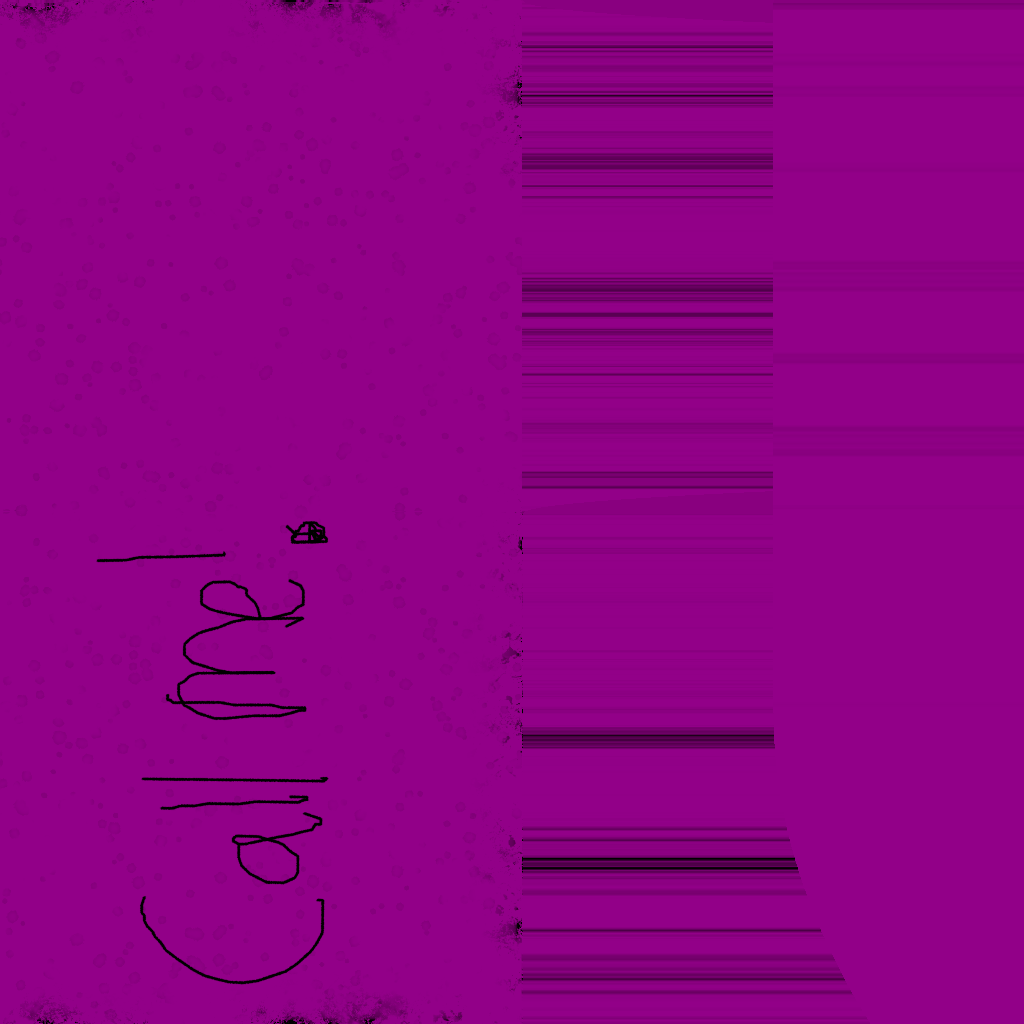 Call me!